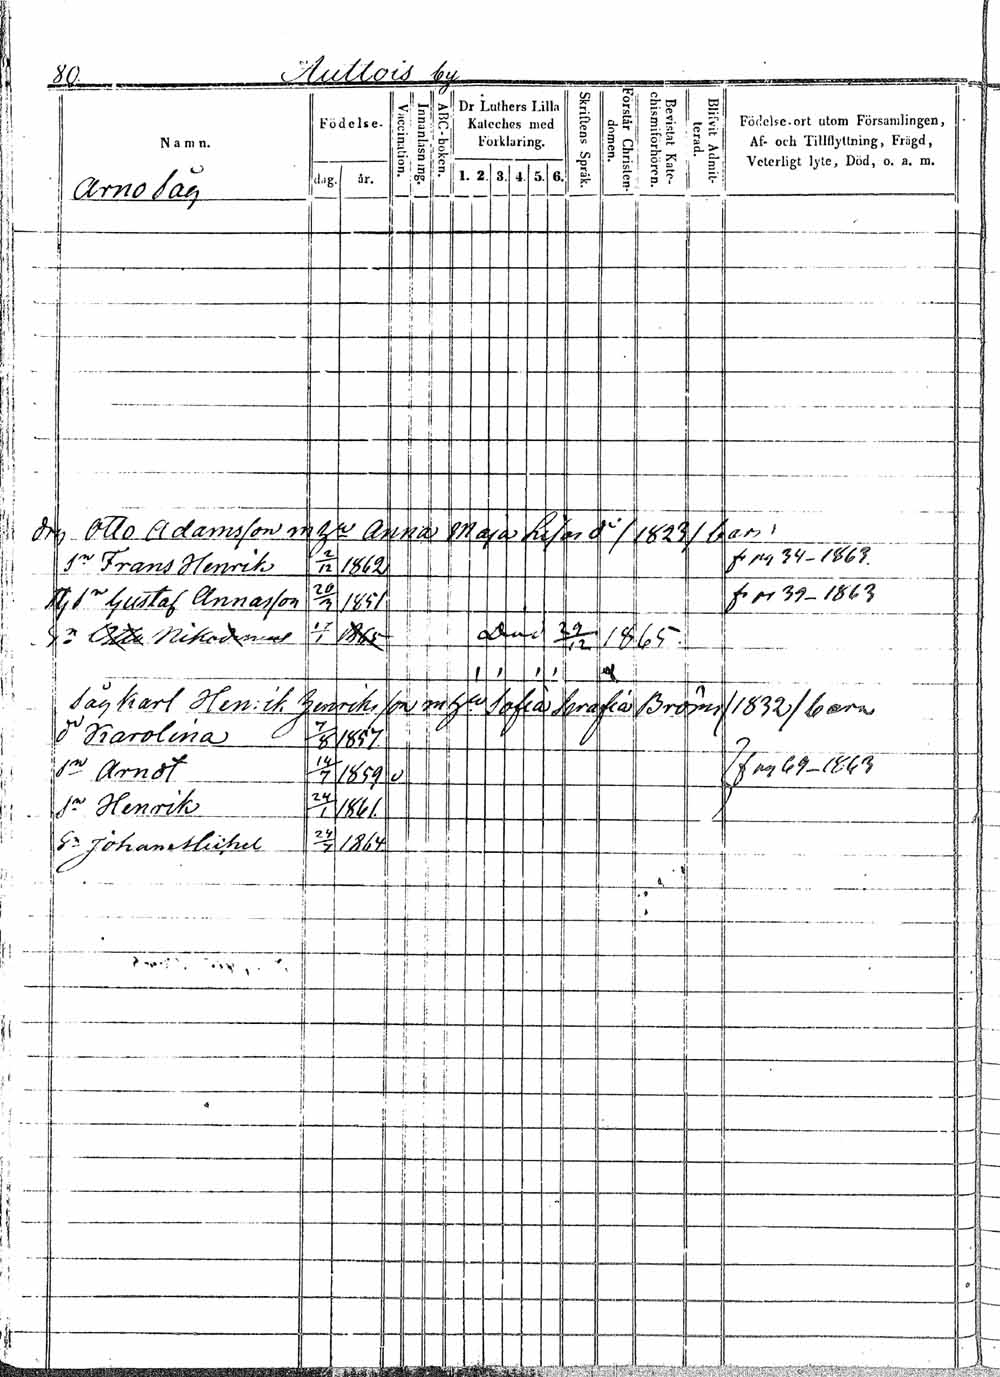 80. Auttois by
Namn.
Födelse-
dag. år.
Vaccination.
Innanläsning.
ABC-boken.
Dr Luthers Lilla
Kateches med
Förklaring.
1. 2. 3. 4. 5. 6.
Skriftens Språk.
Förstår Christen-
domen.
Bevistat Kate-
chismiförhören.
Blifvit Admit-
terad.
Födelse-ort utom Församlingen,
Af- och Tillflyttning, Frägd,
Veterligt lyte, Död, o. a. m.
Arno Såg
Otto Adamsson m Anna Maja /1823/ barn
sn Frans Henrik 2/12 1862 34–1863.
sn Gustaf Annasson 20/3 1851 39–1863
Gn Otto Nikodemus 17/1 1865 29/12 1865.
Såg Karl Henrik Henriksson m Sofia Broms /1832/ barn
dr Karolina 7/8 1857.
sn Arndt 14/7 1859 v 69–1863
sn Henrik 24/1 1861.
Gn Johan Michel 24/7 1864